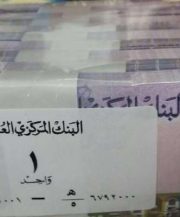 البنك المركزي
البنك المركزي الع
١
واحد
هـ
٥
٦٧٩٢٠٠٠